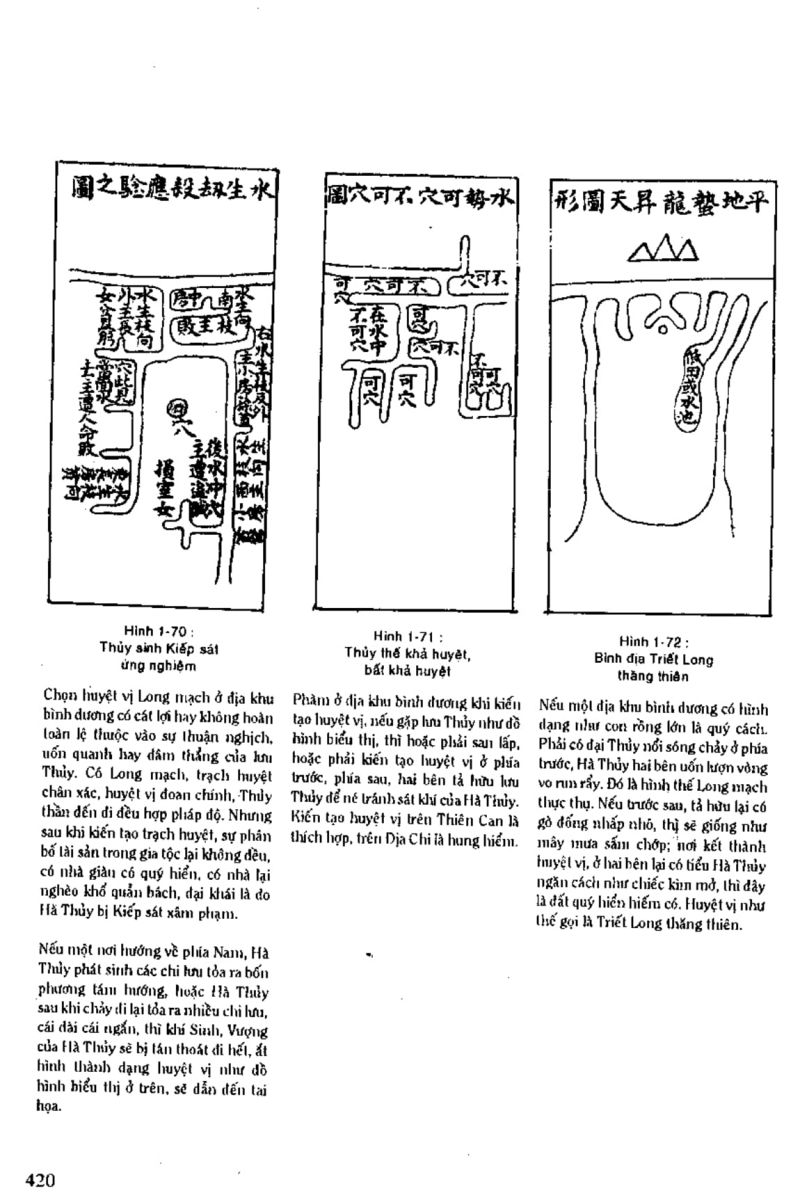 水生劫殺應驗之圖
水生枝向
外主長
女貧窮
南中
局
水主向
枝主敗
右水生枝反外
穴此見
當面水
去主遭人命敗
穴
後水冲
主遭
損室女
水勢可穴不可穴圖
可穴
不可穴
不可穴
在水中
不可穴
可穴
不可穴
可穴
可穴
不可穴
可穴
平地蟄龍昇天圖形
低田或水池
Hình 1-70 :
Thủy sinh Kiếp sát
ứng nghiệm
Chọn huyệt vị Long mạch ở địa khu
bình dương có cát lợi hay không hoàn
toàn lệ thuộc vào sự thuận nghịch,
uốn quanh hay đâm thẳng của lưu
Thủy. Có Long mạch, trạch huyệt
chân xác, huyệt vị đoan chính, Thủy
thần đến đi đều hợp pháp độ. Nhưng
sau khi kiến tạo trạch huyệt, sự phân
bố tài sản trong gia tộc lại không đều,
có nhà giàu có quý hiển, có nhà lại
nghèo khổ quẫn bách, đại khái là do
Hà Thủy bị Kiếp sát xâm phạm.
Nếu một nơi hướng về phía Nam, Hà
Thủy phát sinh các chi lưu tỏa ra bốn
phương tám hướng, hoặc Hà Thủy
sau khi chảy đi lại tỏa ra nhiều chi lưu,
cái dài cái ngắn, thì khí Sinh, Vượng
của Hà Thủy sẽ bị tán thoát đi hết, ắt
hình thành dạng huyệt vị như đồ
hình biểu thị ở trên, sẽ dẫn đến tai
họa.
Hình 1-71 :
Thủy thế khả huyệt,
bất khả huyệt
Phàm ở địa khu bình dương khi kiến
tạo huyệt vị, nếu gặp lưu Thủy như đồ
hình biểu thị, thì hoặc phải san lấp,
hoặc phải kiến tạo huyệt vị ở phía
trước, phía sau, hai bên tả hữu lưu
Thủy để né tránh sát khí của Hà Thủy.
Kiến tạo huyệt vị trên Thiên Can là
thích hợp, trên Địa Chi là hung hiểm.
Hình 1-72 :
Bình địa Triết Long
thăng thiên
Nếu một địa khu bình dương có hình
dạng như con rồng lớn là quý cách.
Phải có đại Thủy nổi sóng chảy ở phía
trước, Hà Thủy hai bên uốn lượn vòng
vo run rẩy. Đó là hình thế Long mạch
thực thụ. Nếu trước sau, tả hữu lại có
gò đống nhấp nhô, thị sẽ giống như
mây mưa sấm chớp; nơi kết thành
huyệt vị, ở hai bên lại có tiểu Hà Thủy
ngăn cách như chiếc kim mở, thì đây
là đất quý hiển hiếm có. Huyệt vị như
thế gọi là Triết Long thăng thiên.
420